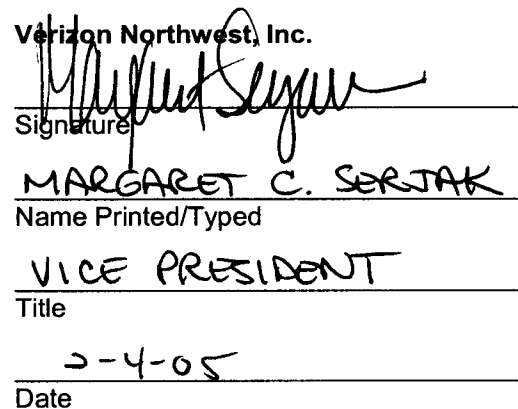 Verizon Northwest, Inc.
Signature
MARGARET C. SERJAK
Name Printed/Typed
VICE PRESIDENT
Title
2-4-05
Date